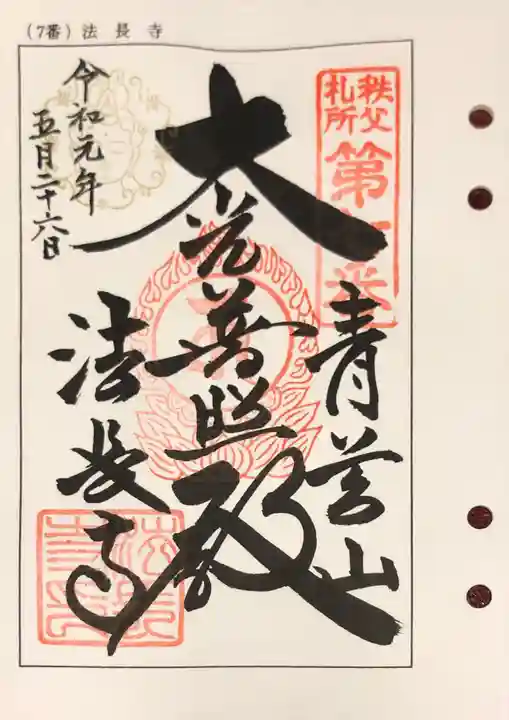 (7番)法長寺
秩父
札所
第七番
青苔山
大光普照殿
法長寺
令和元年
五月二十六日